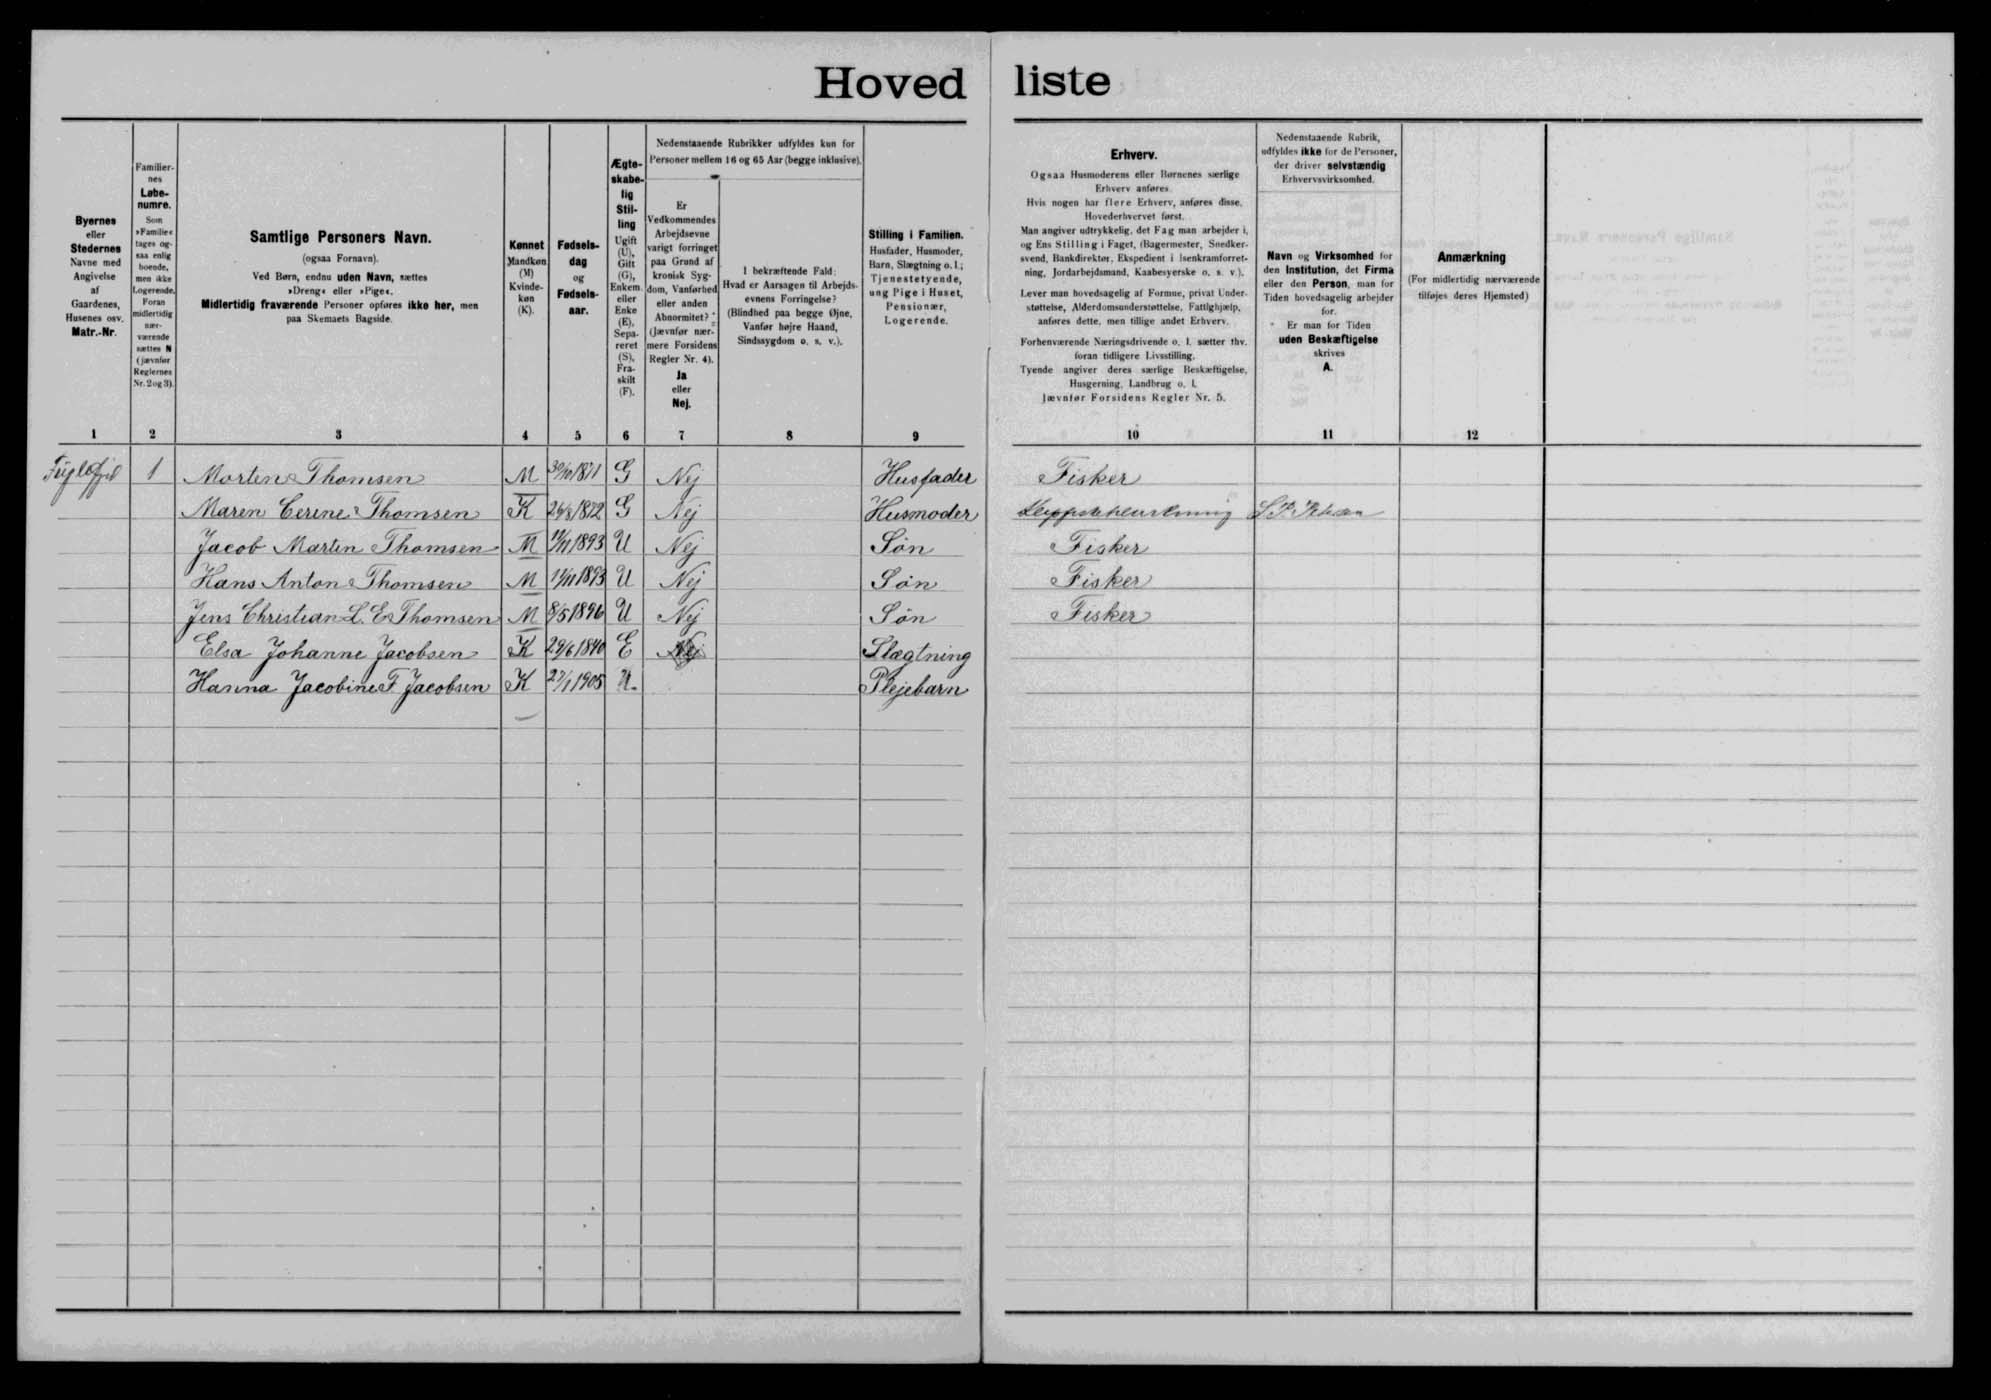 Hoved liste
Byernes
eller
Stedernes
Navne med
Angivelse
af
Gaardenes,
Husenes osv.
Matr.-Nr.
Familier-
nes
Løbe-
numre.
Som
»Familie«
tages og-
saa enlig
boende,
men ikke
Logerende.
Foran
midlertidig
nær-
værende
sættes N
(jævnfør
Reglernes
Nr. 2 og 3).
Samtlige Personers Navn.
(ogsaa Fornavn).
Ved Børn, endnu uden Navn, sættes
»Dreng« eller »Pige«.
Midlertidig fraværende Personer opføres ikke her, men
paa Skemaets Bagside.
Kønnet
Mandkøn
(M)
Kvinde-
køn
(K).
Fødsels-
dag
og
Fødsels-
aar.
Ægte-
skabe-
lig
Stil-
ling
Ugift
(U),
Gift
(G),
Enkem.
eller
Enke
(E),
Sepa-
reret
(S),
Fra-
skilt
(F).
Nedenstaaende Rubrikker udfyldes kun for
Personer mellem 16 og 65 Aar (begge inklusive).
Er
Vedkommendes
Arbejdsevne
varigt forringet
paa Grund af
kronisk Syg-
dom, Vanførhed
eller anden
Abnormitet?
(Jævnfør nær-
mere Forsidens
Regler Nr. 4).
Ja
eller
Nej.
I bekræftende Fald:
Hvad er Aarsagen til Arbejds-
evnens Forringelse?
(Blindhed paa begge Øjne,
Vanfør højre Haand,
Sindssygdom o. s. v.).
Stilling i Familien.
Husfader, Husmoder,
Barn, Slægtning o. l.;
Tjenestetyende,
ung Pige i Huset,
Pensionær,
Logerende.
Erhverv.
Ogsaa Husmoderens eller Børnenes særlige
Erhverv anføres.
Hvis nogen har flere Erhverv, anføres disse,
Hovederhvervet først.
Man angiver udtrykkelig, det Fag man arbejder i,
og Ens Stilling i Faget, (Bagermester, Snedker-
svend, Bankdirektør, Ekspedient i Isenkramforret-
ning, Jordarbejdsmand, Kaabesyerske o. s. v.).
Lever man hovedsagelig af Formue, privat Under-
støttelse, Alderdomsunderstøttelse, Fattighjælp,
anføres dette, men tillige andet Erhverv.
Forhenværende Næringsdrivende o. l. sætter thv.
foran tidligere Livsstilling.
Tyende angiver deres særlige Beskæftigelse,
Husgerning, Landbrug o. l.
Jævnfør Forsidens Regler Nr. 5.
Nedenstaaende Rubrik,
udfyldes ikke for de Personer,
der driver selvstændig
Erhvervsvirksomhed.
Navn og Virksomhed for
den Institution, det Firma
eller den Person, man for
Tiden hovedsagelig arbejder
for.
Er man for Tiden
uden Beskæftigelse
skrives
A.
Anmærkning
(For midlertidig nærværende
tilføjes deres Hjemsted)
1 2 3 4 5 6 7 8 9 10 11 12
1 Morten Thomsen M 30/10 1871 G Nej Husfader Fisker
Maren Cerine Thomsen K 26/8 1872 G Nej Husmoder
Jacob Martin Thomsen M 11/11 1893 U Nej Søn Fisker
Hans Anton Thomsen M 11/11 1893 U Nej Søn Fisker
Jens Christian L. E. Thomsen M 8/5 1896 U Nej Søn Fisker
Elsa Johanne Jacobsen K 29/6 1840 E Nej Slægtning
Hanna Jacobine F Jacobsen K 27/1 1905 U. Plejebarn